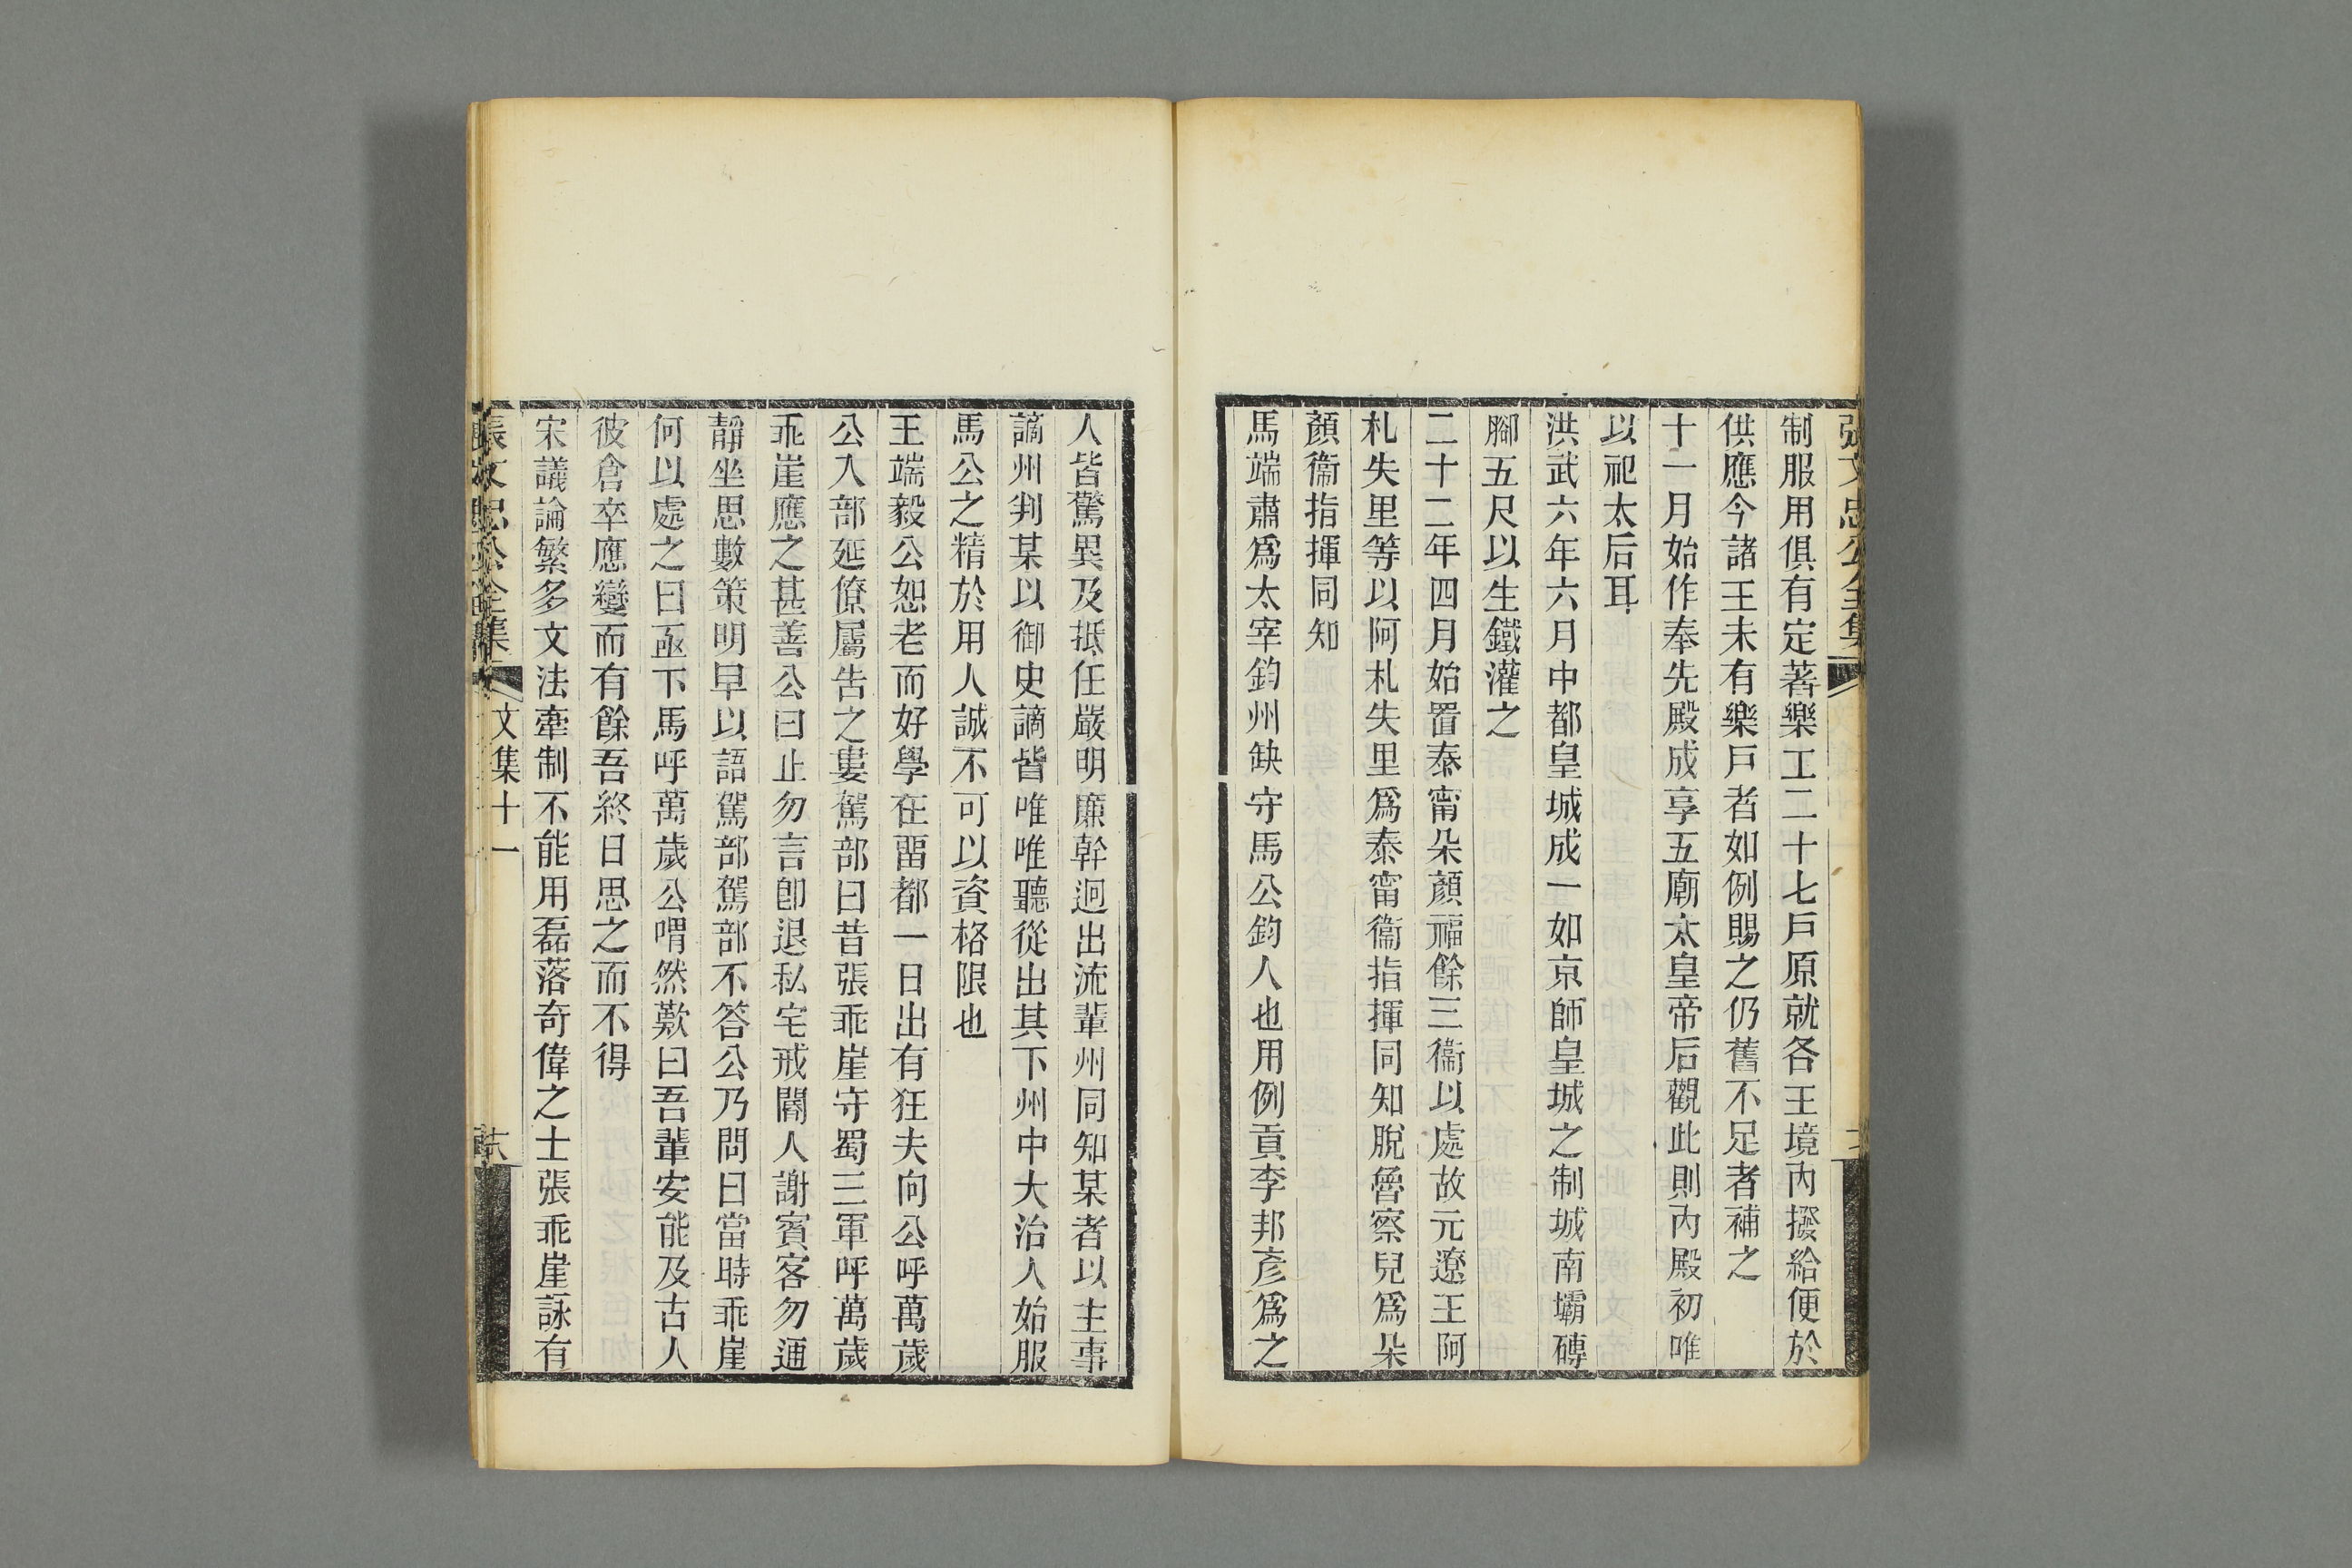 張文忠公全集
制服用俱有定著樂工二十七戶原就各王境內撥給便於
供應今諸王未有樂戶者如例賜之仍舊不足者補之
十一月始作奉先殿成享五廟太皇帝后觀此則內殿初唯
以祀太后耳
洪武六年六月中都皇城成一如京師皇城之制城南壩磚
腳五尺以生鐵灌之
二十二年四月始置泰甯朵顏福餘三衞以處故元遼王阿
札失里等以阿札失里爲泰甯衞指揮同知脫魯察兒爲朵
顏衞指揮同知
馬端肅爲太宰鈞州缺守馬公鈞人也用例貢李邦彥爲之
人皆驚異及抵任嚴明廉幹迥出流輩州同知某者以主事
謫州判某以御史謫皆唯唯聽從出其下州中大治人始服
馬公之精於用人誠不可以資格限也
王端毅公恕老而好學在畱都一日出有狂夫向公呼萬歲
公入部延僚屬告之婁駕部曰昔張乖崖守蜀三軍呼萬歲
乖崖應之甚善公曰止勿言卽退私宅戒閽人謝賓客勿通
靜坐思數策明早以語駕部駕部不答公乃問曰當時乖崖
何以處之曰亟下馬呼萬歲公喟然歎曰吾輩安能及古人
彼倉卒應變而有餘吾終日思之而不得
宋議論繁多文法牽制不能用磊落奇偉之士張乖崖詠有
張文忠公全集 文集十一